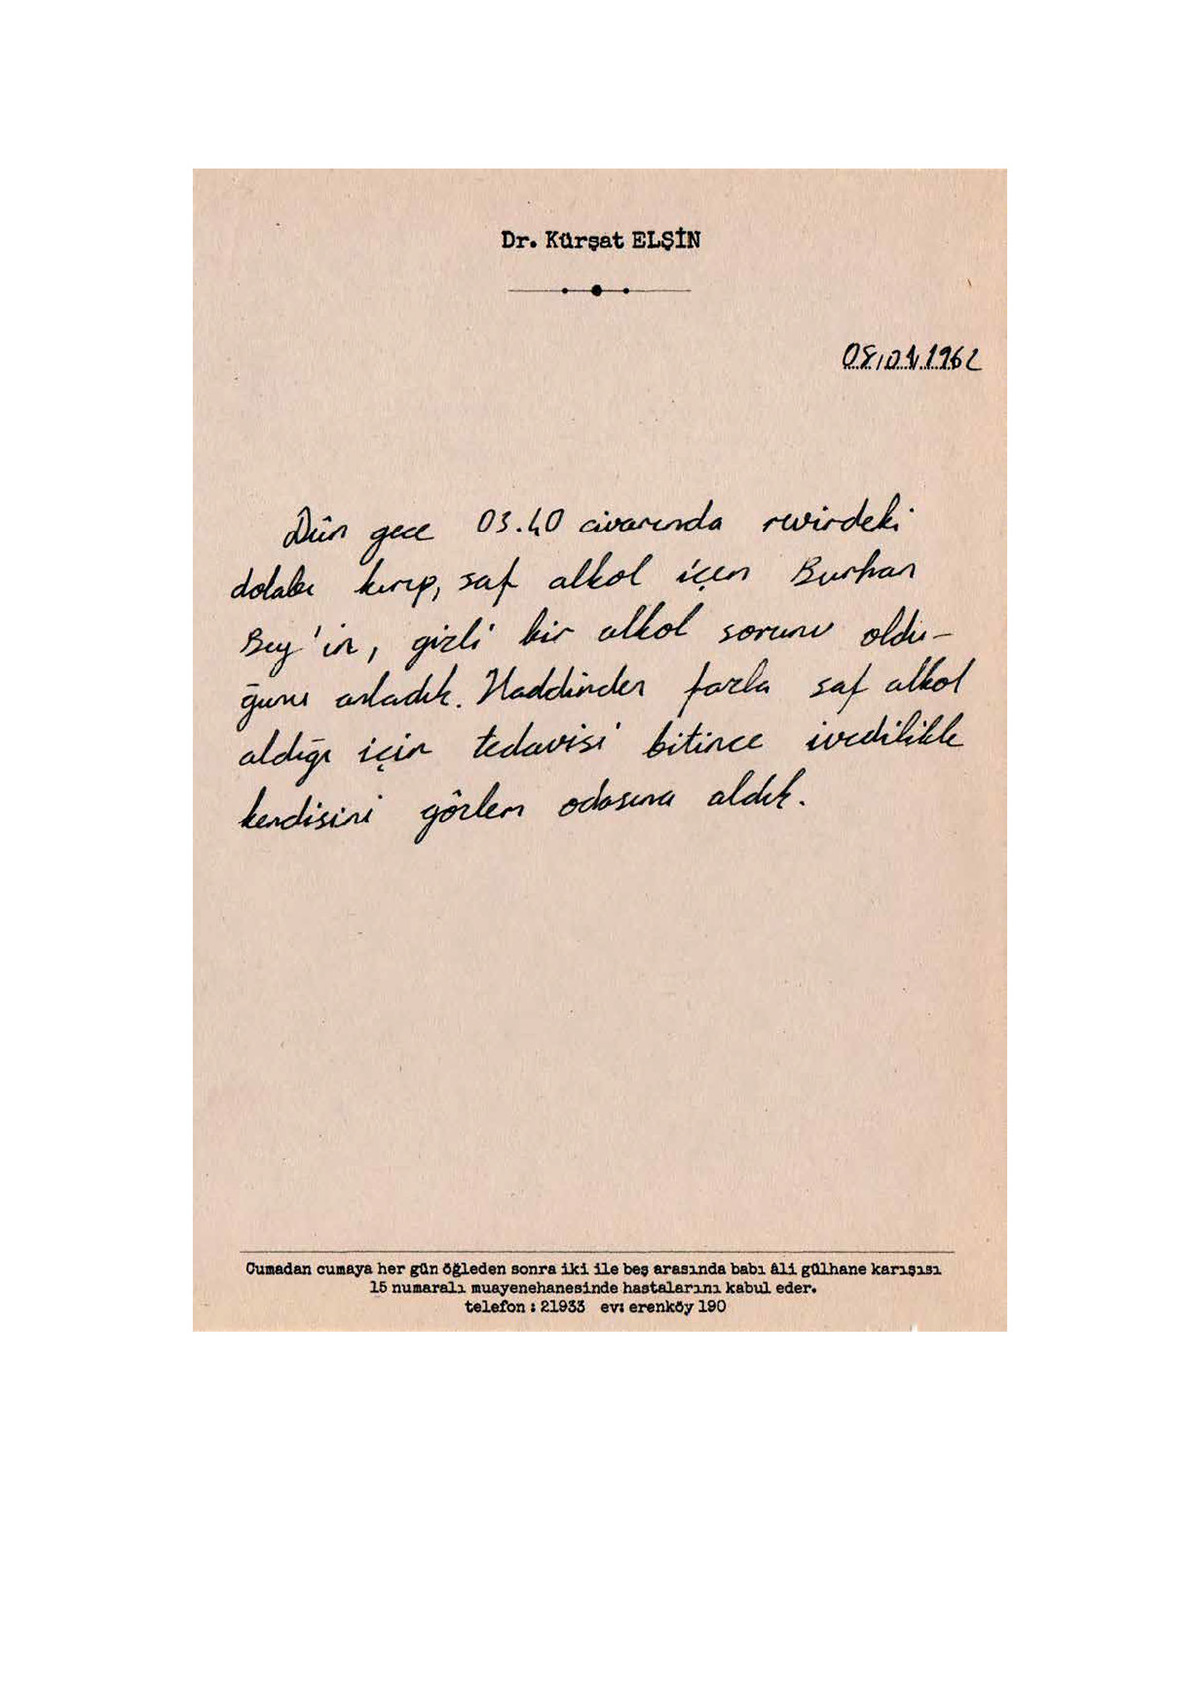 Dr. Kürşat ELŞİN
08.01.1962
Dün gece 03.40 civarında revirdeki
dolabı kırıp, saf alkol içen Burhan
Bey'in, gizli bir alkol sorunu oldu-
ğunu anladık. Haddinden fazla saf alkol
aldığı için tedavisi bitince ivedilikle
kendisini gözlem odasına aldık.
Cumadan cumaya her gün öğleden sonra iki ile beş arasında babı âli gülhane karışısı
15 numaralı muayenehanesinde hastalarını kabul eder.
telefon : 21933 ev: erenköy 190